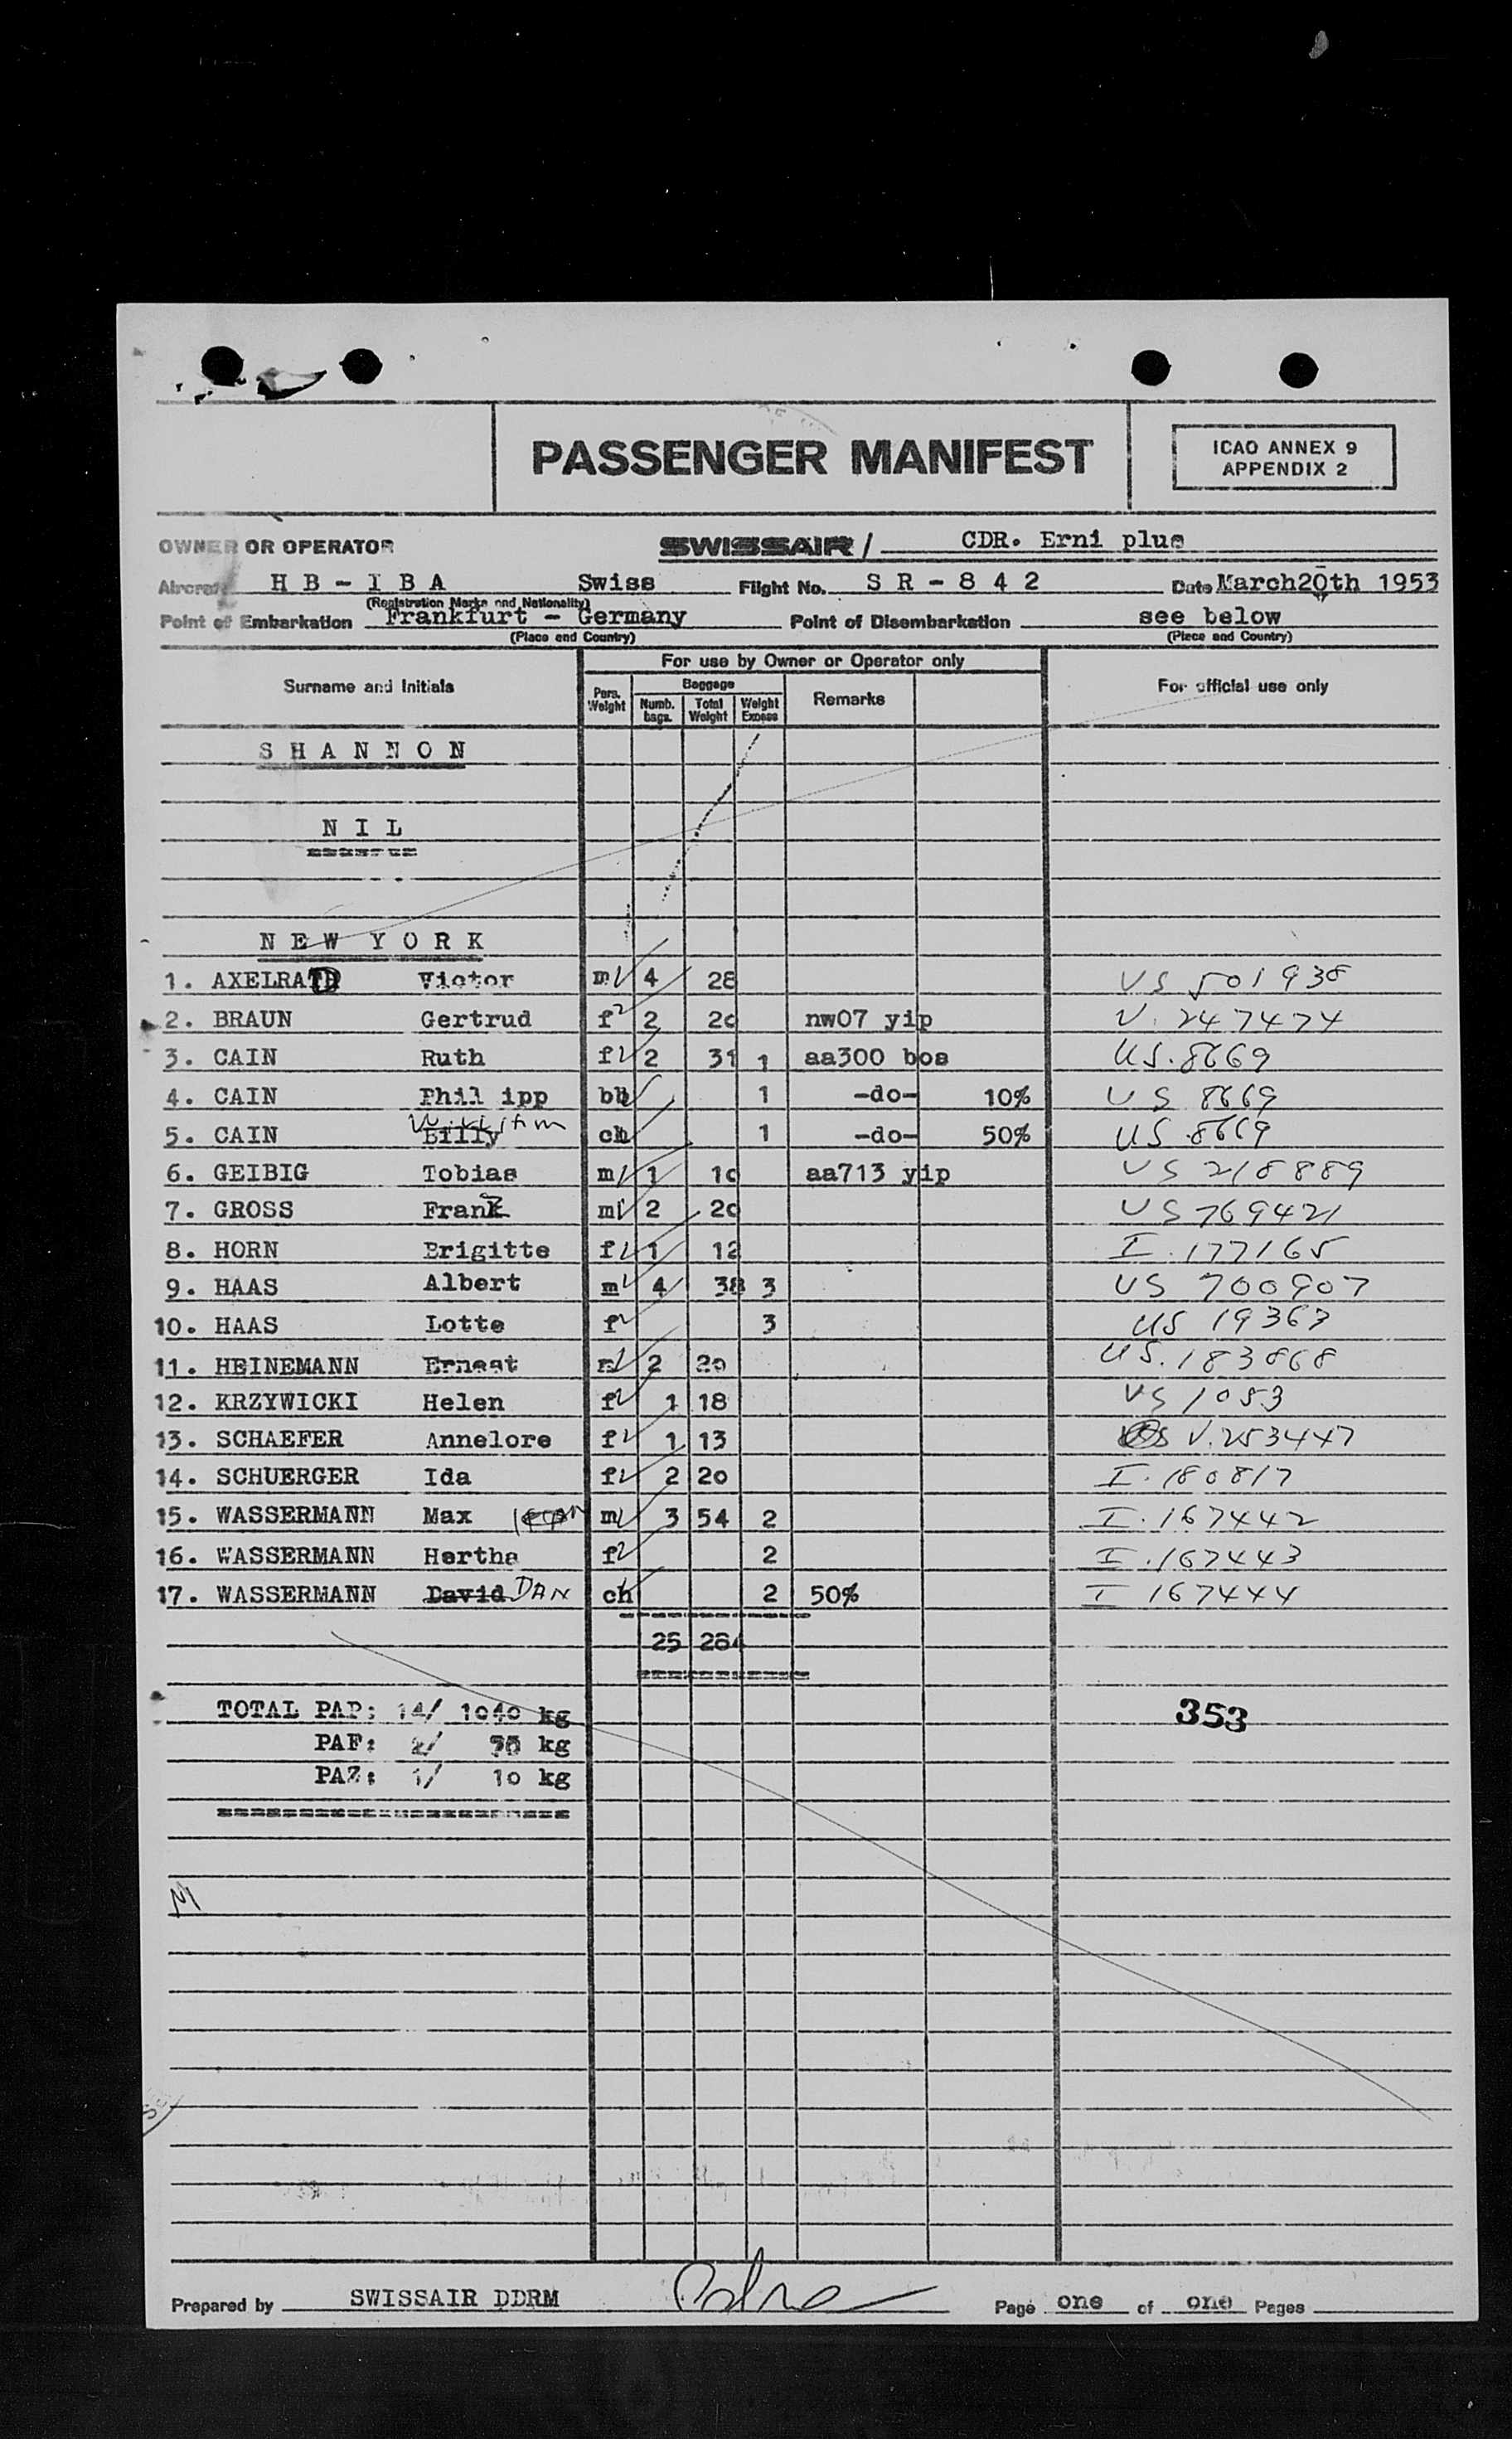 PASSENGER MANIFEST
ICAO ANNEX 9
APPENDIX 2
OWNER OR OPERATOR SWISSAIR / CDR. Erni plus
Aircraft H B - I B A Swiss Flight No. S R - 8 4 2 Date March 20th 1953
(Registration Marks and Nationality)
Point of Embarkation Frankfurt - Germany Point of Disembarkation see below
(Place and Country) (Place and Country)
For use by Owner or Operator only
Surname and Initials Pers. Weight Baggage Numb. bags. Total Weight Weight Excess Remarks For official use only
S H A N N O N
N I L
N E W Y O R K
1. AXELRAD Victor m 4 28 US 501938
2. BRAUN Gertrud f 2 20 nw07 yip V. 247474
3. CAIN Ruth f 2 31 1 aa300 bos US. 8669
4. CAIN Phil ipp bb 1 -do- 10% US 8669
5. CAIN Billy ch 1 -do- 50% US 8669
6. GEIBIG Tobias m 1 10 aa713 yip US 218889
7. GROSS Franz m 2 20 US 769421
8. HORN Brigitte f 1 12 I. 177165
9. HAAS Albert m 4 38 3 US 700907
10. HAAS Lotte f 3 US 19363
11. HEINEMANN Ernest m 2 20 US. 183868
12. KRZYWICKI Helen f 1 18 US 1053
13. SCHAEFER Annelore f 1 13 V. 253447
14. SCHUERGER Ida f 2 20 I. 180817
15. WASSERMANN Max m 3 54 2 I. 167442
16. WASSERMANN Hertha f 2 I. 167443
17. WASSERMANN David DAN ch 2 50% I 167444
25 284
TOTAL PAP: 14/ 1040 kg 353
PAF: 2/ kg
PAZ: 1/ 10 kg
M
Prepared by SWISSAIR DDRM Page one of one Pages